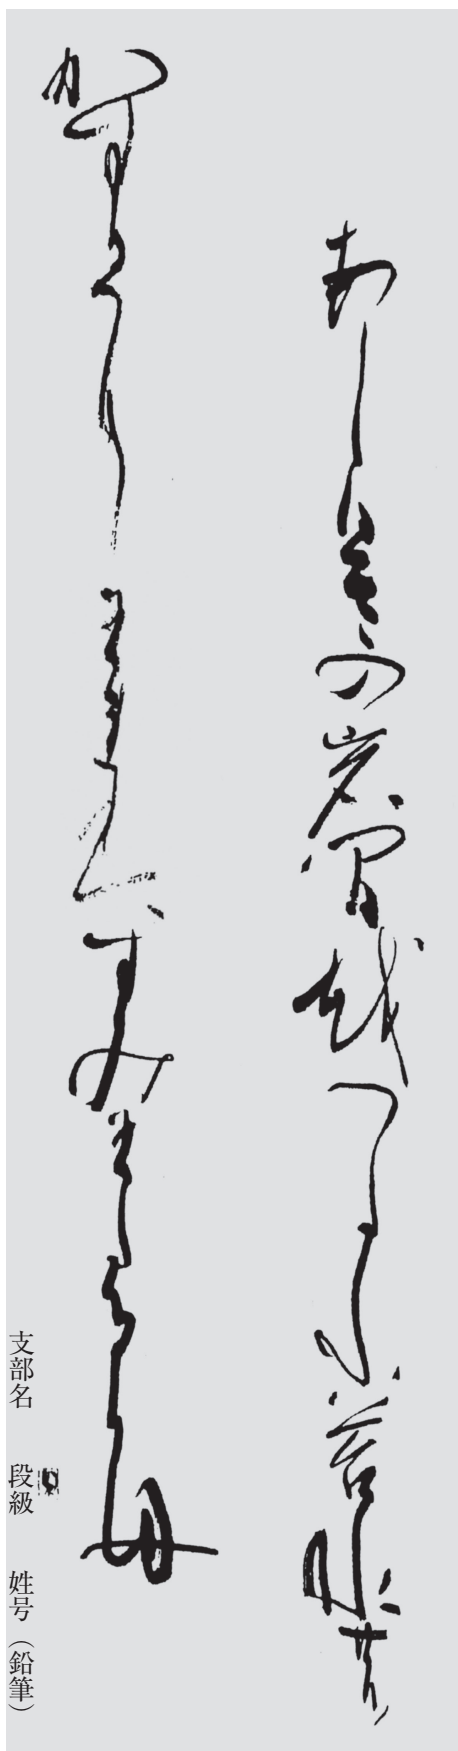 あしひきの岩間越つたふ苔水の
かすかにわれはすみわたるかも
支部名　段級　姓号（鉛筆）